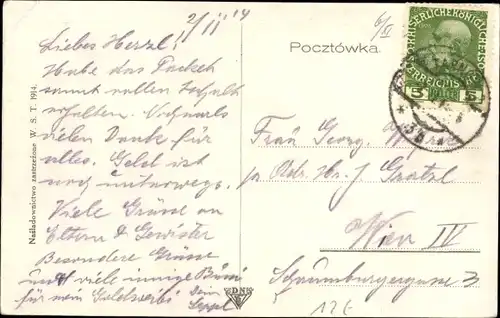 2/11 14
Liebes Herzl!
Habe das Packet
samt vollen Inhalt
erhalten. Nochmals
vielen Dank für
alles. Geld ist
noch unterwegs.
Viele Grüsse an
Eltern & Gewister
Besondere Grüsse
und viele innige Bussi
für mein Goldweibi Dein
Seppl
Pocztówka.
Nakładownictwo zastrzeżone W. S. T. 1914.
Frau Georg
Wien IV
Schaumburgergasse 3
KAISERLICHE KÖNIGLICHE
ÖSTERREICHISCHE
5 5
DNS